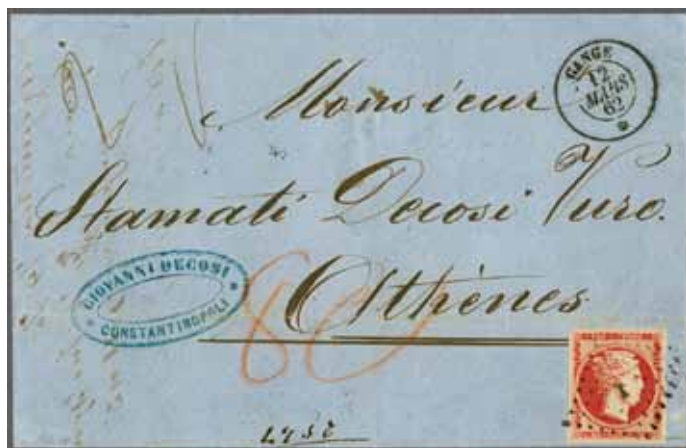 GANGE
12
MARS
62
Monsieur
Stamati Decosi Vuro.
Athènes
GIOVANNI DECOSI
CONSTANTINOPOLI
80